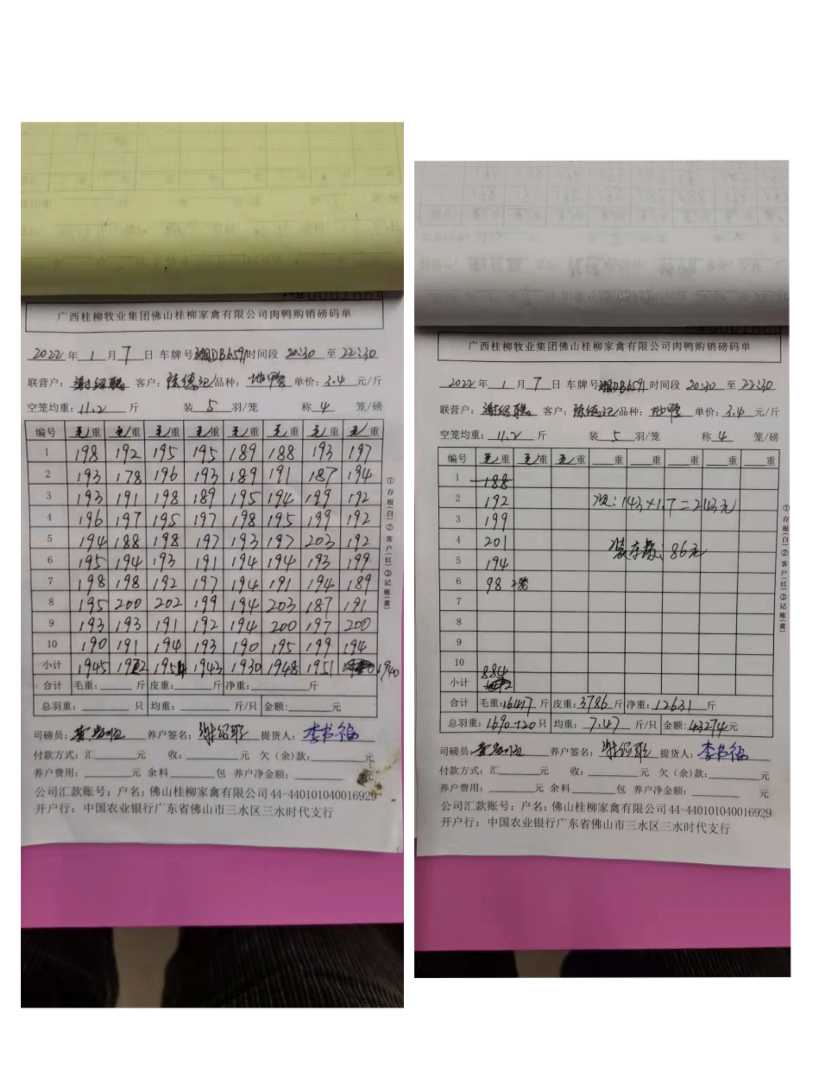 广西桂柳牧业集团佛山桂柳家禽有限公司肉鸭购销磅码单
2022年 1月 7日 车牌号 时间段 20:30 至 22:30
联营户： 客户： 品种： 单价：3.4元/斤
空笼均重：11.2 斤 装 5 羽/笼 称 4 笼/磅
编号 毛重 毛重 毛重 毛重 毛重 毛重 毛重 毛重
1 198 192 195 195 189 188 193 197
2 193 178 196 193 189 191 187 194
3 193 191 198 189 195 194 199 192
4 196 197 195 197 198 195 199 192
5 194 188 198 197 193 197 203 192
6 195 194 193 191 194 194 193 199
7 198 198 192 197 194 191 194 189
8 195 200 202 199 194 203 187 191
9 193 193 191 192 194 200 197 200
10 190 191 194 193 190 195 199 194
小计 1945 1922 1954 1943 1930 1948 1951 1940
合计 毛重： 斤 皮重： 斤 净重： 斤
总羽重： 只 均重： 斤/只 金额： 元
①存根(白)②客户(红)③记账(黄)
司磅员： 养户签名： 提货人：
付款方式：汇 元 收： 元 欠(余)款： 元
养户费用： 元 余料 包 养户净金额： 元
公司汇款账号：户名：佛山桂柳家禽有限公司44-440101040016929
开户行：中国农业银行广东省佛山市三水区三水时代支行
广西桂柳牧业集团佛山桂柳家禽有限公司肉鸭购销磅码单
2022年 1月 7日 车牌号 时间段 20:30 至 22:30
联营户： 客户： 品种： 单价：3.4元/斤
空笼均重：11.2 斤 装 5 羽/笼 称 4 笼/磅
编号 毛重 毛重 毛重 重 重 重 重 重
1 188
2 192 143×1.7=243元
3 199
4 201 装车费：86元
5 194
6 98 2笼
7
8
9
10
小计 884
合计 毛重：16417斤 皮重：3786斤 净重：12631斤
总羽重：1690+20只 均重：7.47斤/只 金额：43274元
①存根(白)②客户(红)③记账(黄)
司磅员： 养户签名： 提货人：
付款方式：汇 元 收： 元 欠(余)款： 元
养户费用： 元 余料 包 养户净金额： 元
公司汇款账号：户名：佛山桂柳家禽有限公司44-440101040016929
开户行：中国农业银行广东省佛山市三水区三水时代支行